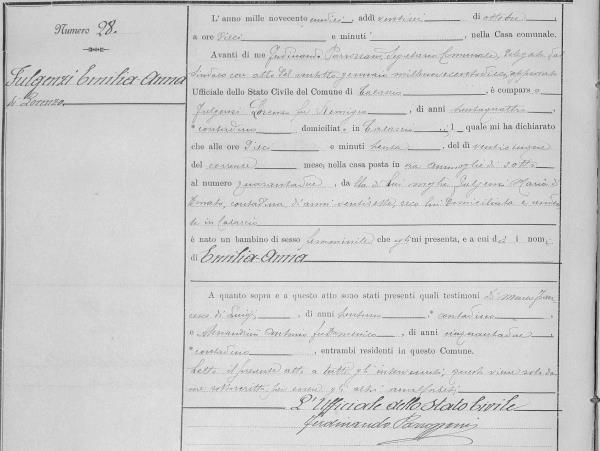 Numero 28.
Fulgenzi Emilia Anna
di Lorenzo
L'anno mille novecento undici, addì ventinove di ottobre
a ore Dieci e minuti, nella Casa comunale.
Avanti di me Ferdinando Segretario Comunale, Delegato dal
Sindaco con atto del gennaio millenovecentodieci, approvato
Ufficiale dello Stato Civile del Comune di, è comparso
Fulgenzi Lorenzo fu Remigio, di anni trentaquattro
contadino domiciliato in, il quale mi ha dichiarato
che alle ore Dieci e minuti trenta, del dì
del corrente mese, nella casa posta in via di sotto
al numero quarantadue, da di lui moglie Fulgenzi Maria di
Donato, contadina di anni ventisette, seco lui domiciliata e
te in
è nato un bambino di sesso femminile che gli mi presenta, e a cui dà i nomi
di Emilia-Anna
A quanto sopra e a questo atto sono stati presenti quali testimoni Di Marco
cesco di Luigi, di anni trentuno, contadino
e Antonio fu Domenico, di anni cinquantadue
contadino, entrambi residenti in questo Comune.
Letto il presente atto a tutti gli intervenuti, questo viene solo da
me sottoscritto per essere gli altri analfabeti
L'Ufficiale dello Stato Civile
Ferdinando